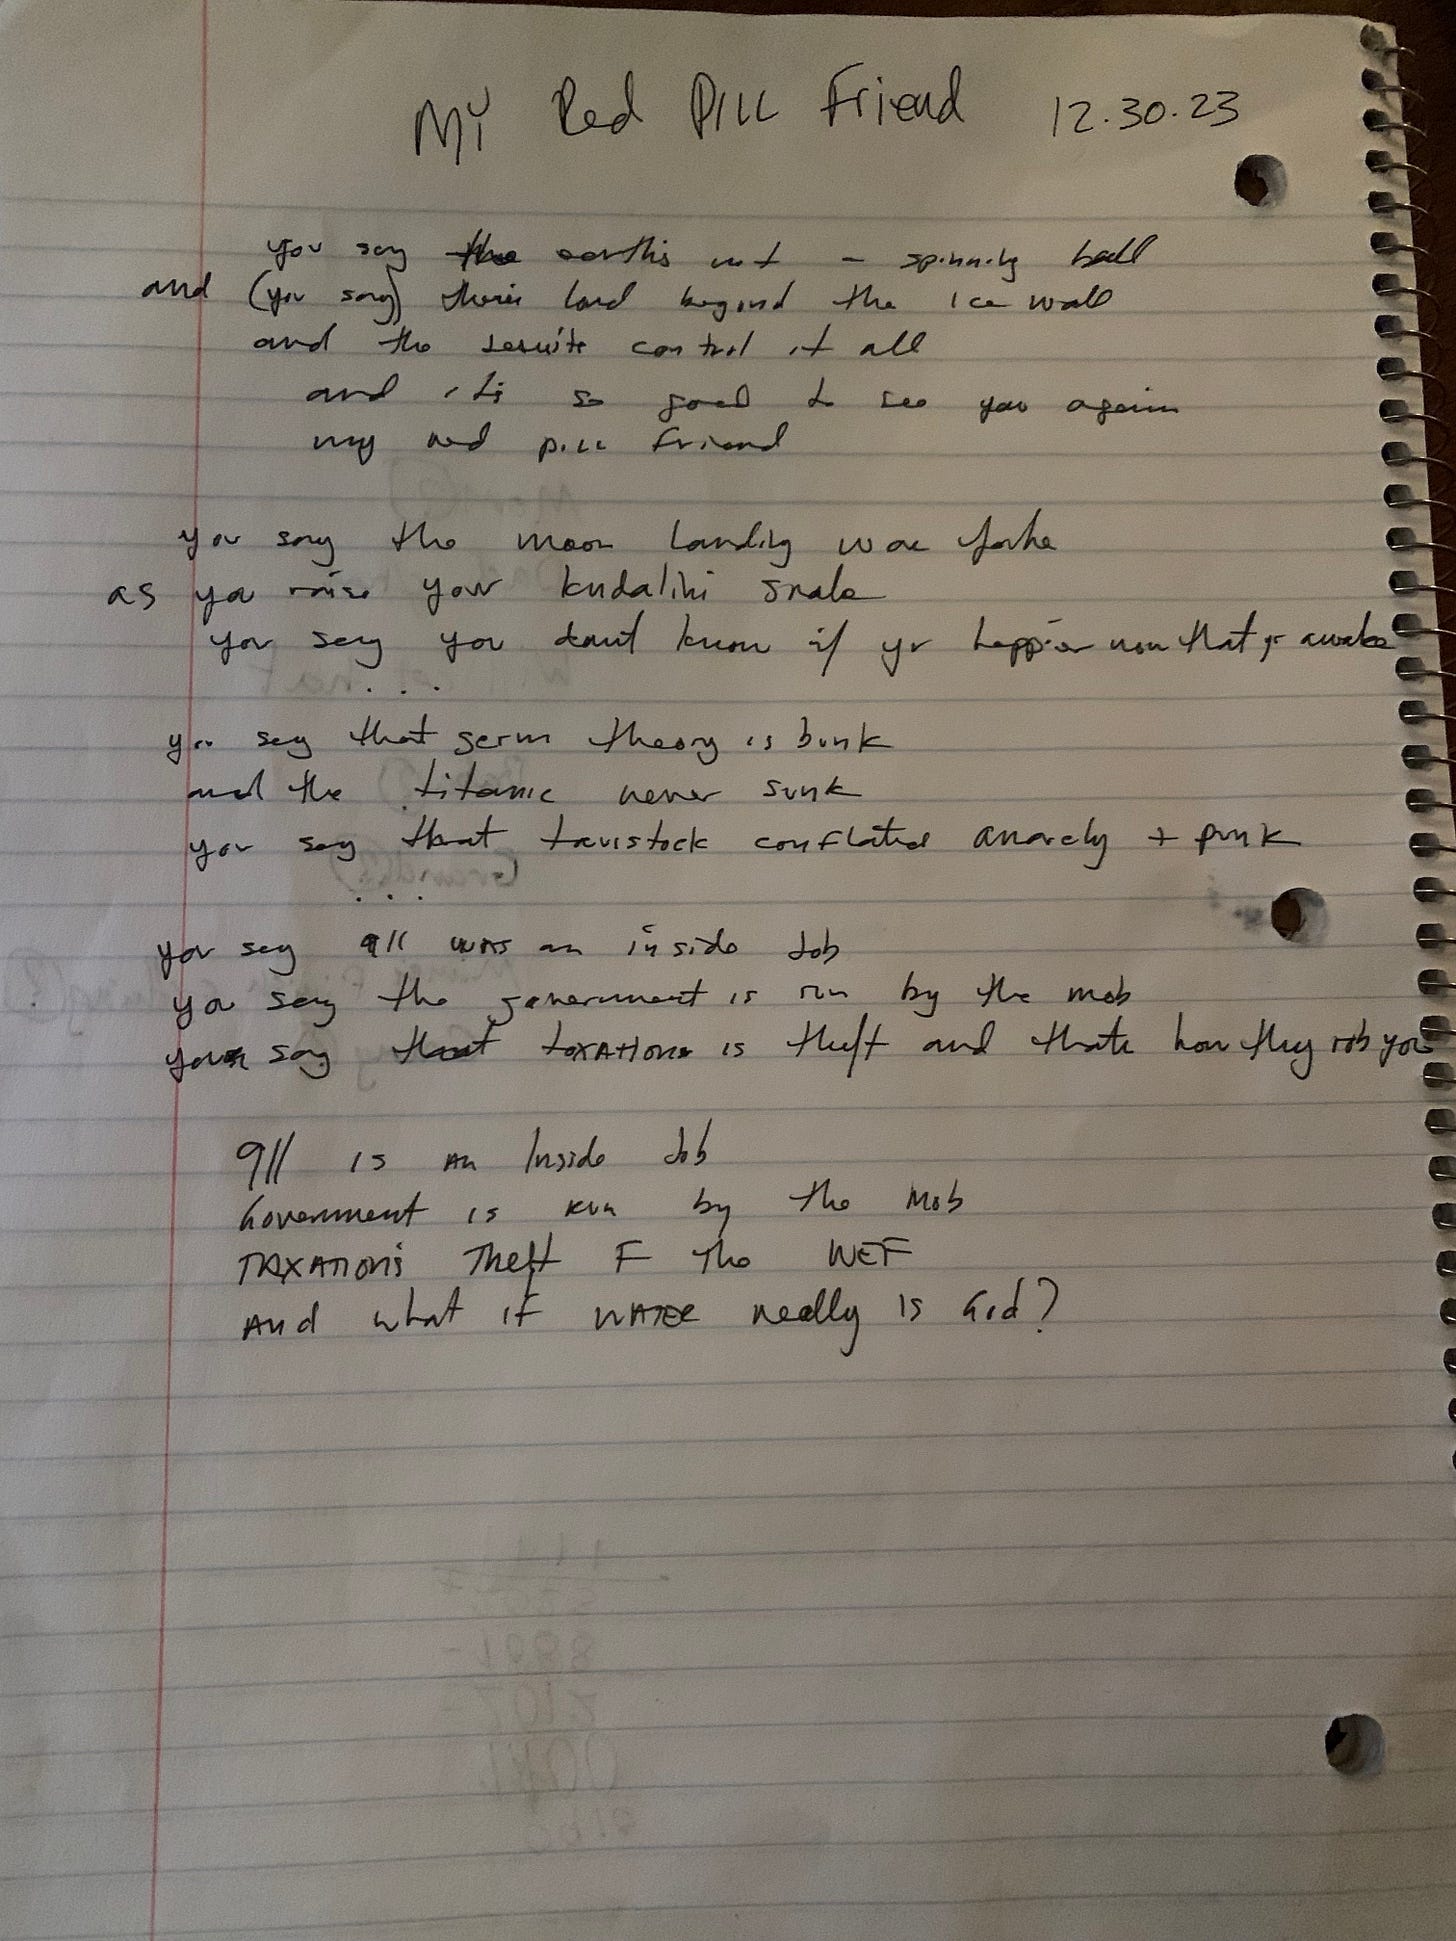 My Red Pill Friend 12.30.23
you say the earth's not a spinning ball
and (you say) there's land beyond the ice wall
and the Jesuits control it all
and it's so good to see you again
my red pill friend
you say the moon landing was fake
as you raise your kudalini snake
you say you don't know if yr happier now that yr awake
...
you say that germ theory is bunk
and the titanic never sunk
you say that tavistock conflated anarchy + punk
...
you say 911 was an inside Job
you say the government is run by the mob
you say that taxation is theft and that's how they rob you
911 is an Inside Job
Government is run by the Mob
TAXATION'S Theft F The WEF
And what if WATER really is God?